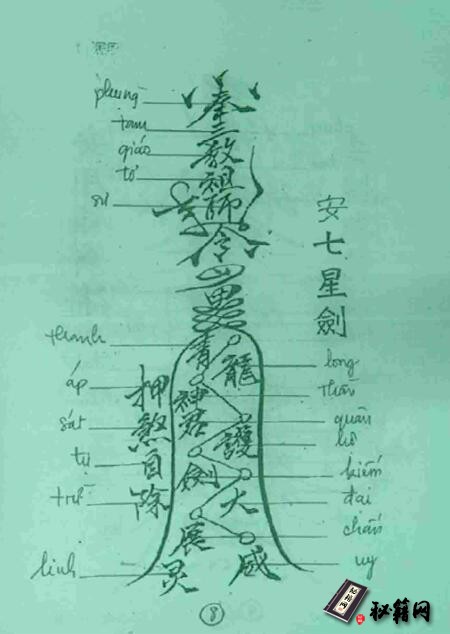 phụng
tam
giáo
tổ
sư
奉
三
教
祖
師
令
安七星劍
thanh
áp
sát
tự
trừ
linh
押煞自除
青
龍
神君
護
劍
大
展
灵
威
long
thần
quân
hộ
kiếm
đại
chấn
uy
8
秘籍网